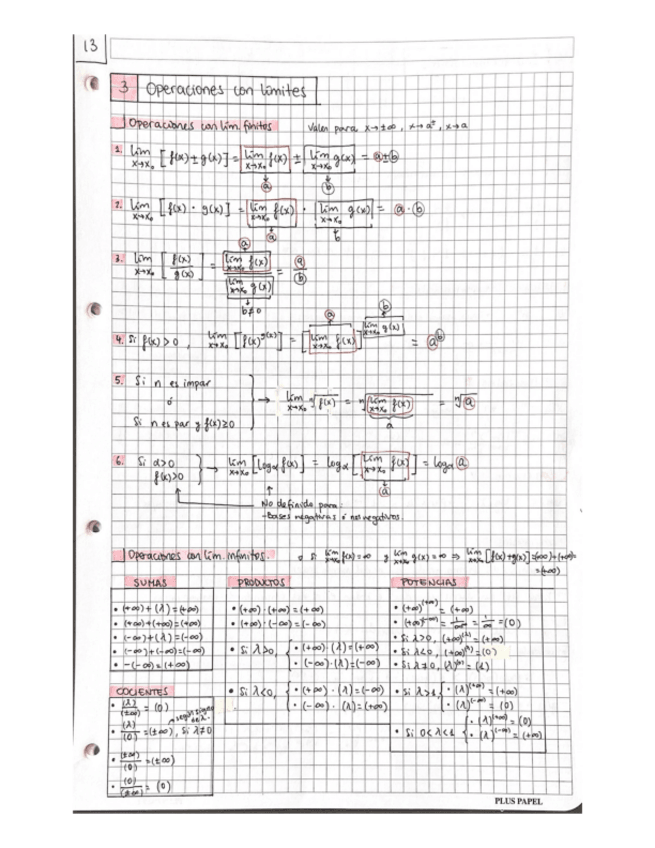 13
3 Operaciones con límites
Operaciones con lím. finitos Vales para x→±∞, x→a±, x→a
1. lím x→x₀ [f(x)±g(x)] = lím x→x₀ f(x) ± lím x→x₀ g(x) = a±b
a b
2. lím x→x₀ [f(x)·g(x)] = lím x→x₀ f(x) · lím x→x₀ g(x) = a·b
a b
a
3. lím x→x₀ [f(x)/g(x)] = lím x→x₀ f(x) / lím x→x₀ g(x) = a/b
b≠0
a b
4. Si f(x)>0, lím x→x₀ [f(x)^g(x)] = [lím x→x₀ f(x)]^lím x→x₀ g(x) = a^b
5. Si n es impar
ó → lím x→x₀ ⁿ√f(x) = ⁿ√lím x→x₀ f(x) = ⁿ√a
Si n es par y f(x)≥0 a
6. Si α>0
f(x)>0 → lím x→x₀ [logα f(x)] = logα [lím x→x₀ f(x)] = logα a
a
No definido para:
- Bases negativas ó nos negativos.
Operaciones con lím. infinitos. o si lím x→x₀ f(x)=∞ y lím x→x₀ g(x)=∞ ⇒ lím x→x₀ [f(x)+g(x)]=(+∞)+(+∞)=
=(+∞)
SUMAS
• (+∞)+(λ)=(+∞)
• (+∞)+(+∞)=(+∞)
• (-∞)+(λ)=(-∞)
• (-∞)+(-∞)=(-∞)
• -(-∞)=(+∞)
PRODUCTOS
• (+∞)·(+∞)=(+∞)
• (+∞)·(-∞)=(-∞)
• Si λ>0, { • (+∞)·(λ)=(+∞)
• (-∞)·(λ)=(-∞)
• Si λ<0, { • (+∞)·(λ)=(-∞)
• (-∞)·(λ)=(+∞)
POTENCIAS
• (+∞)^(+∞) = (+∞)
• (+∞)^(-∞) = 1/∞^∞ = 1/∞ = (0)
• Si λ>0, (+∞)^(λ)=(+∞)
• Si λ<0, (+∞)^(λ)=(0)
• Si λ≠0, (λ)^(0)=(1)
• Si λ>1 { • (λ)^(+∞) = (+∞)
• (λ)^(-∞) = (0)
• Si 0<λ<1 { • (λ)^(+∞) = (0)
• (λ)^(-∞) = (+∞)
COCIENTES
• (λ)/(±∞) = (0)
según signo de λ.
• (λ)/(0) = (±∞), si λ≠0
• (±∞)/(0) = (±∞)
• (0)/(±∞) = (0)
PLUS PAPEL